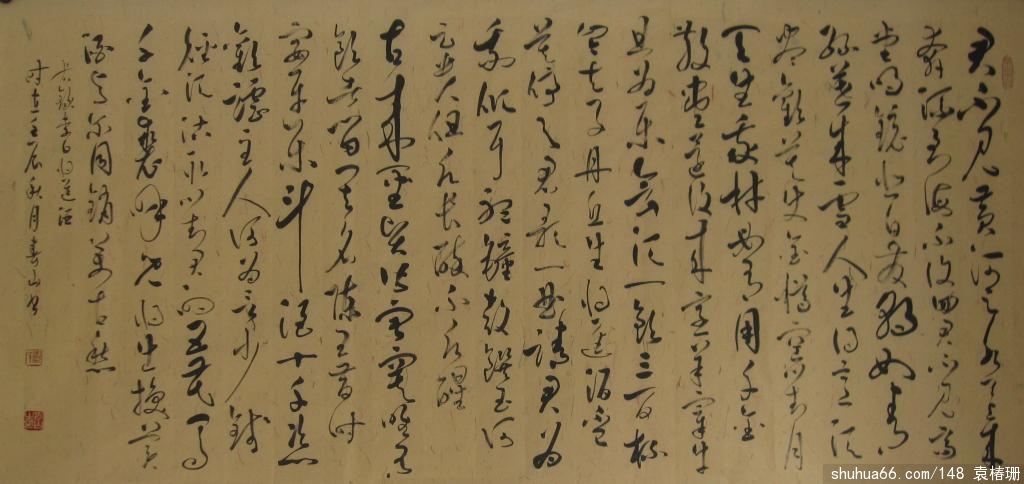 君不见黄河之水天上来
奔流到海不复回君不见高
堂明镜悲白发朝如青
丝暮成雪人生得意须
尽欢莫使金樽空对月
天生我材必有用千金
散尽还复来烹羊宰牛
且为乐会须一饮三百杯
岑夫子丹丘生将进酒杯
莫停与君歌一曲请君为
我倾耳听钟鼓馔玉何
足贵但愿长醉不愿醒
古来圣贤皆寂寞惟有
饮者留其名陈王昔时
宴平乐斗酒十千恣
欢谑主人何为言少钱
径须沽取对君酌五花马
千金裘呼儿将出换美
酒与尔同销万古愁
李白将进酒
时在壬辰秋月寿山书
shuhua66.com/148 袁椿珊